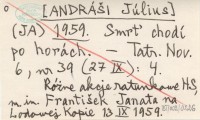 [ANDRÁŠI Július]
(JA) 1959. Smrť chodí
po horách. — Tatr. Nov.
6, nr 39 (27 IX): 4.
Różne akcje ratunkowe HS,
m.in. František Janata na
Lodowej Kopie 13 IX 1959.